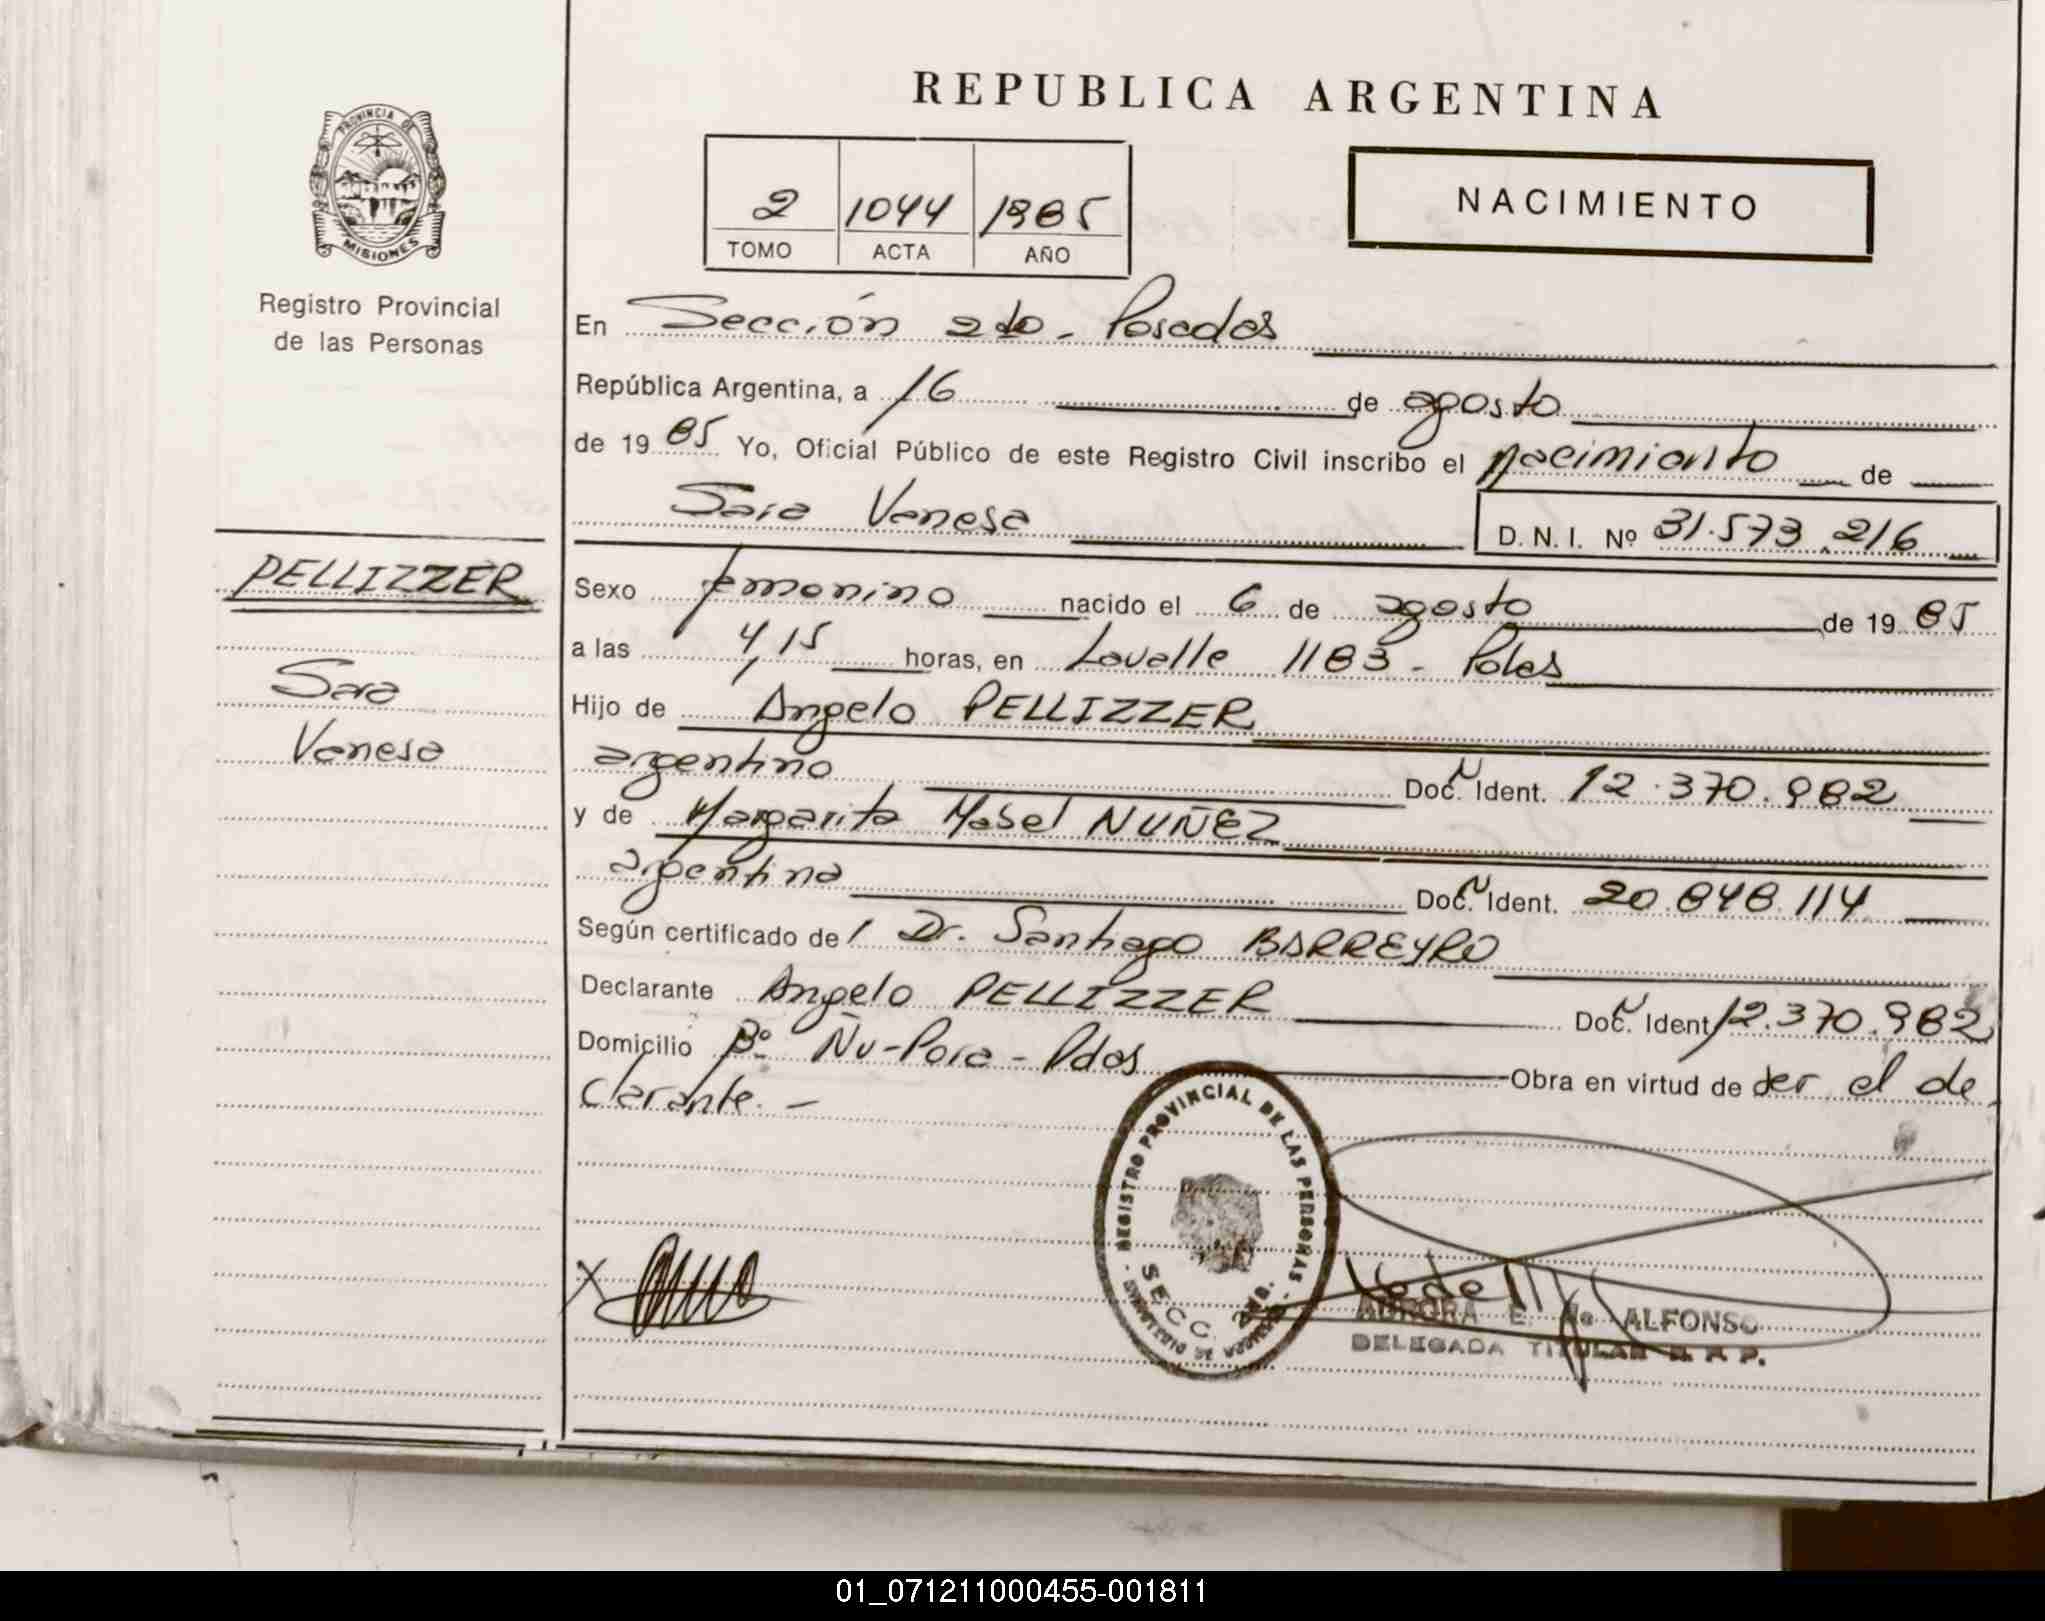 REPUBLICA ARGENTINA
PROVINCIA DE
MISIONES
Registro Provincial
de las Personas
2 1044 1985
TOMO ACTA AÑO
NACIMIENTO
En Sección 2da - Posadas
República Argentina, a 16 de agosto
de 19 85 Yo, Oficial Público de este Registro Civil inscribo el nacimiento de
Sara Vanesa D. N. I. Nº 31.573.216
PELLIZZER
Sara
Vanesa
Sexo femenino nacido el 6 de agosto de 19 85
a las 4,15 horas, en Lavalle 1183 - Pdas
Hijo de Angelo PELLIZZER
argentino Doc. Ident. 12.370.982
y de Margarita Mabel NUÑEZ
argentina Doc. Ident. 20.848.114
Según certificado de / Dr. Santiago BARREYRO
Declarante Angelo PELLIZZER Doc. Ident. 12.370.982
Domicilio Bº Ñu-Pora - Pdas Obra en virtud de ser el de
clarante. -
REGISTRO PROVINCIAL DE LAS PERSONAS
SECC. 2DA.
AURORA E. de ALFONSO
DELEGADA TITULAR R. P. P.
01_071211000455-001811